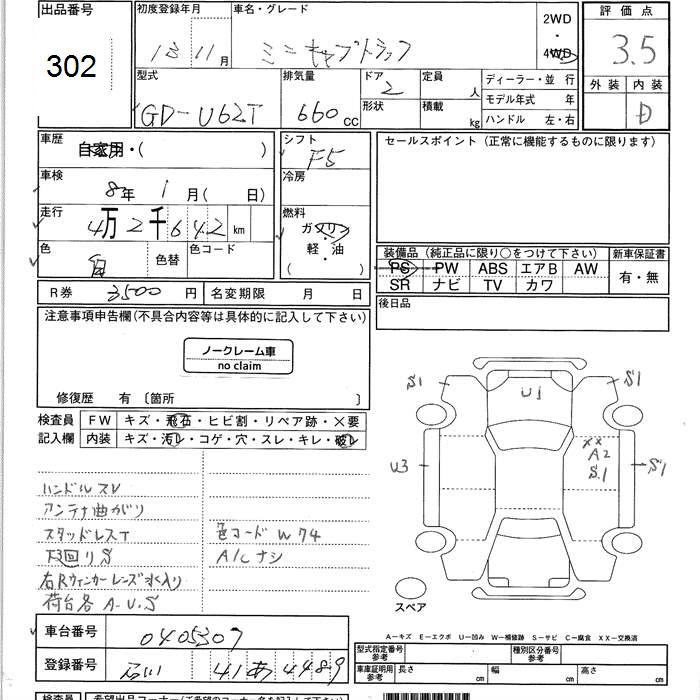 出品番号
302
初度登録年月
13 11月
車名・グレード
ミニキャブトラック
2WD
・
4WD
評価点
3.5
外装 内装
D
型式
GD-U62T
排気量
660 cc
ドア
2
形状
定員
人
積載
kg
ディーラー・並 行
モデル年式 年
ハンドル 左・右
車歴
自家用・( )
シフト
F5
セールスポイント (正常に機能するものに限ります)
車検
8年 1月( 日)
冷房
走行
4万2千642 km
燃料
ガソリン
・
軽・油
( )
色
白
色替
色コード
装備品 (純正品に限り○をつけて下さい)
PS PW ABS エアB AW
SR ナビ TV カワ
新車保証書
有・無
R券 3500 円
名変期限 月 日
後日品
注意事項申告欄(不具合内容等は具体的に記入して下さい)
ノークレーム車
no claim
修復歴 有 〔箇所 〕
検査員
記入欄
FW キズ・飛石・ヒビ割・リペア跡・×要
内装 キズ・汚レ・コゲ・穴・スレ・キレ・破レ
S1
U1
S1
U3
XX
A2
S.1
S1
ハンドルスレ
アンテナ曲がり
スタッドレスT
色コード W74
下回りS
A/Cナシ
右Rウィンカーレンズ水入り
荷台各 A・U・S
スペア
車台番号
0405307
登録番号
石川 41 あ 4489
A-キズ E-エクボ U-凹み W-補修跡 S-サビ C-腐食 XX-交換済
型式指定番号
参考
種別区分番号
参考
車庫証明用
参考
長さ cm
幅 cm
高さ cm